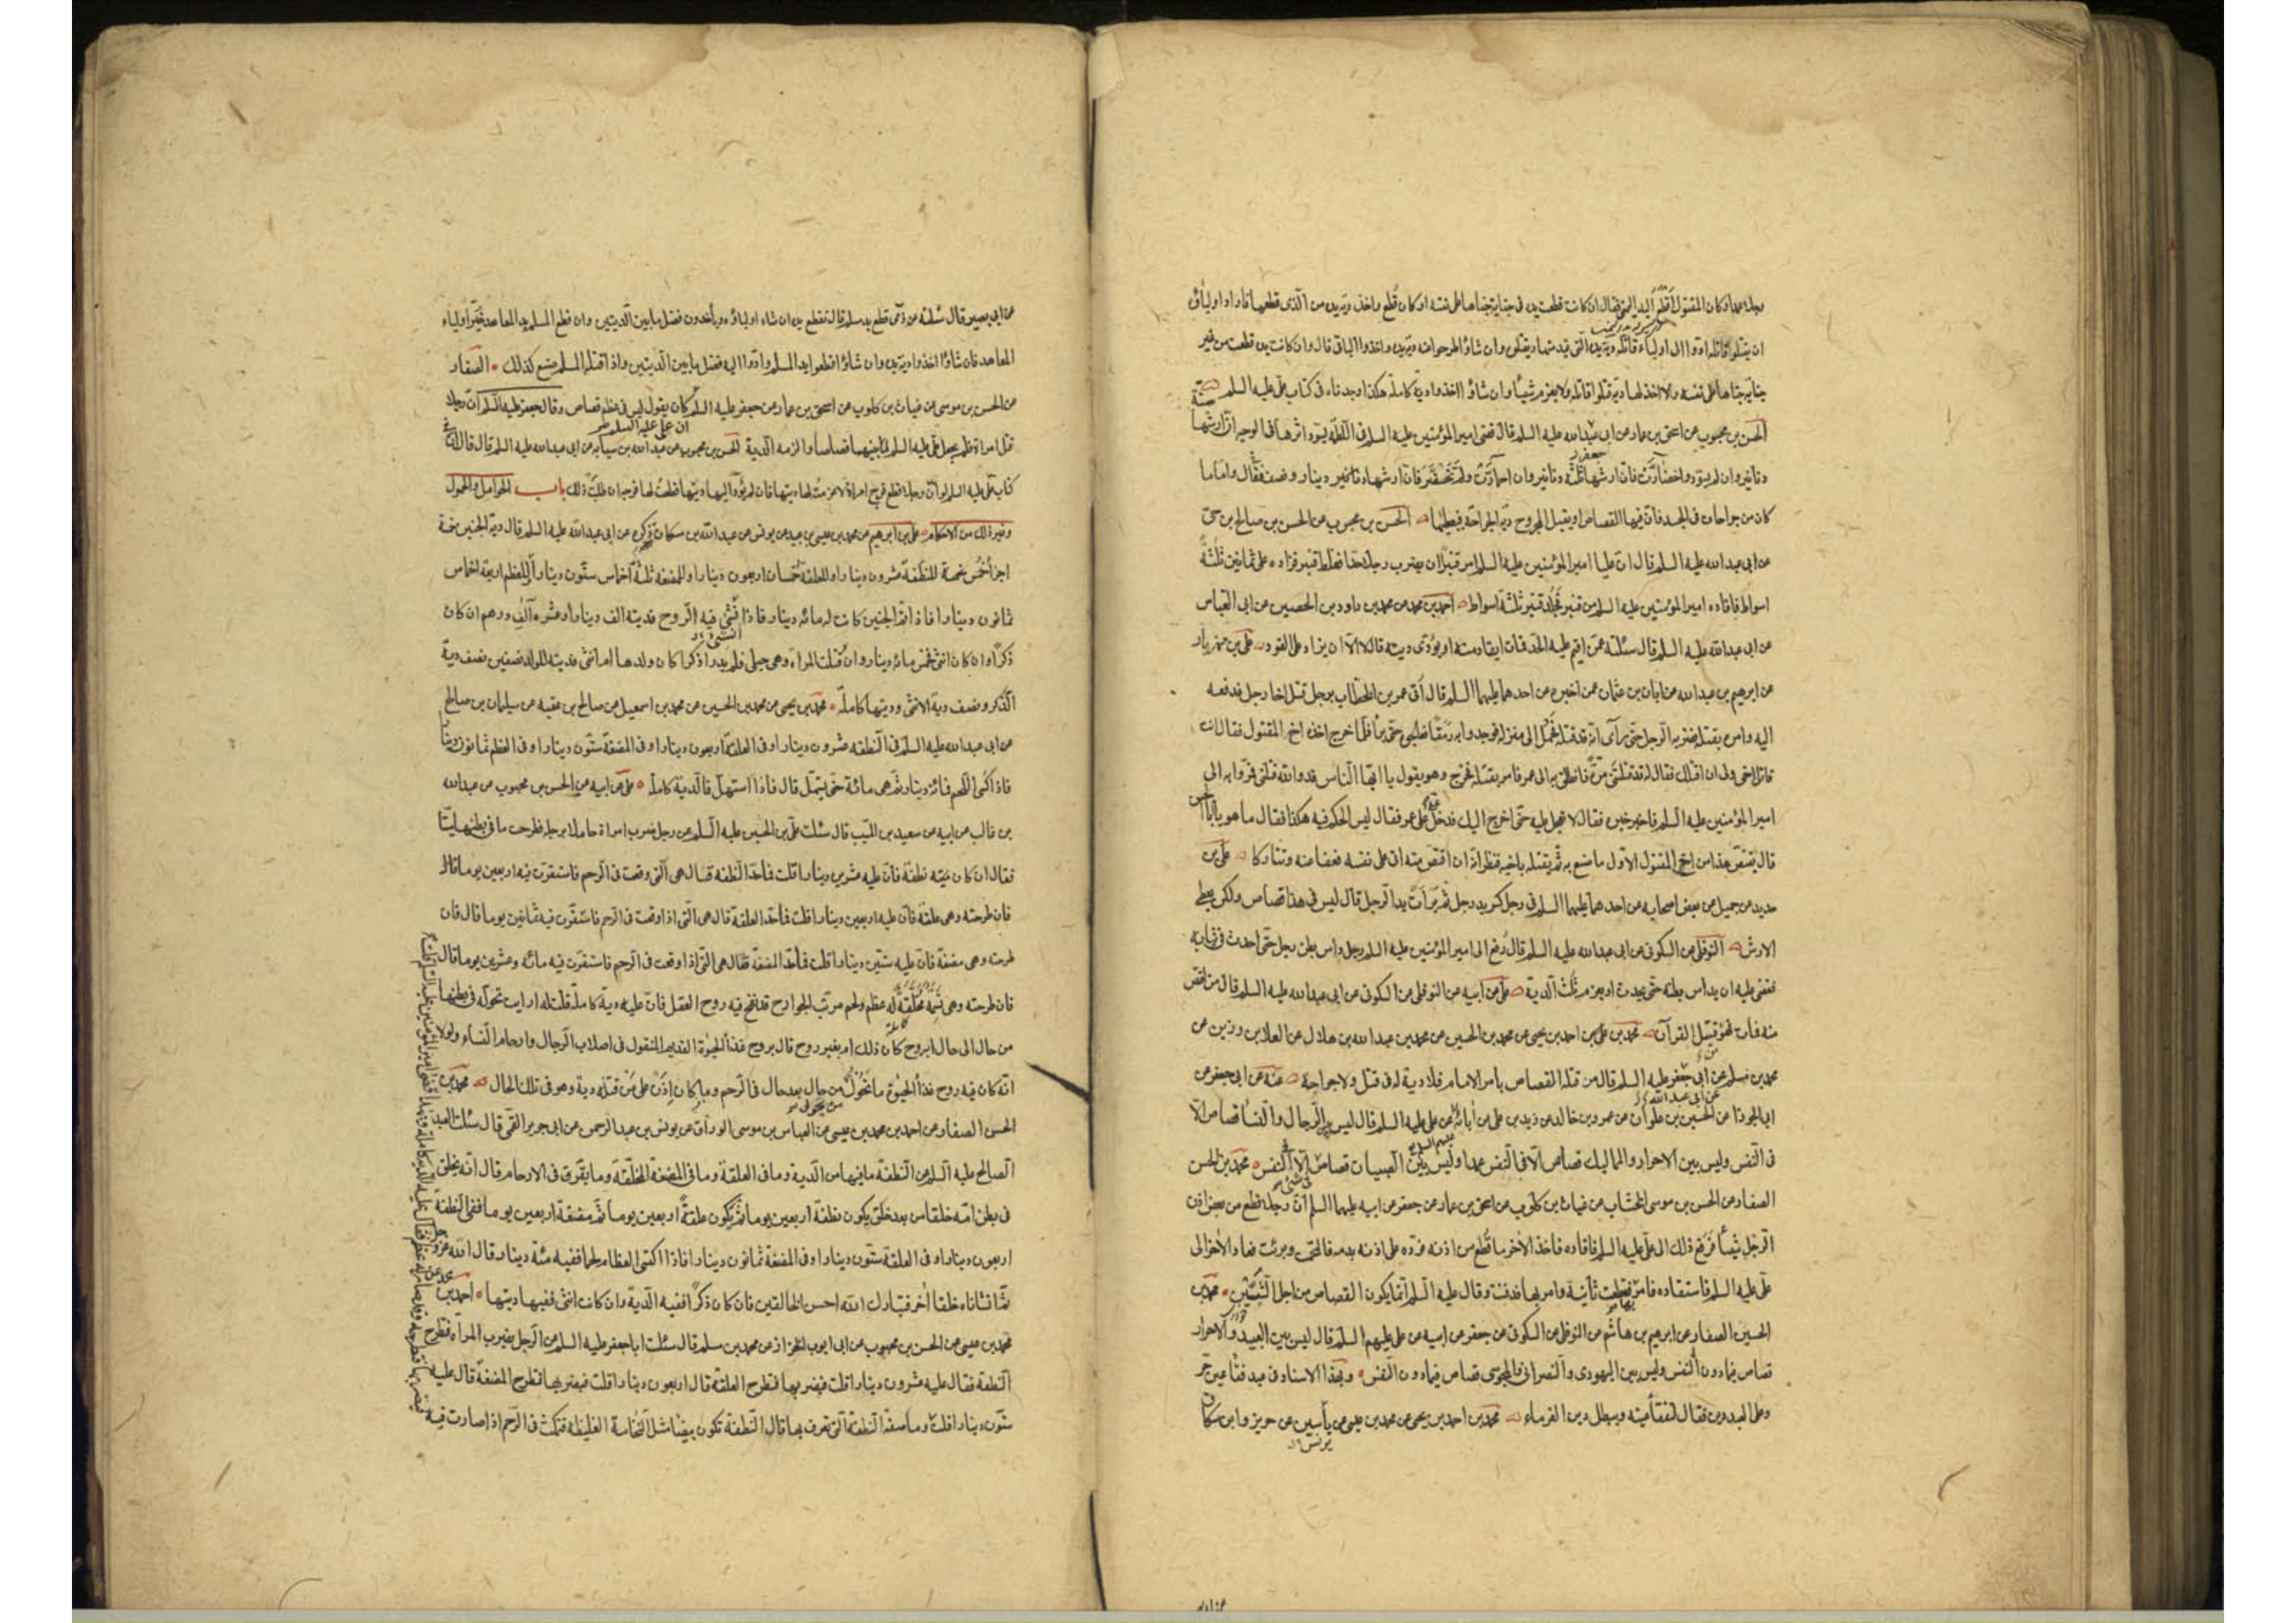 رجلا عمدا وكان المقتول اقطع اليد اليمنى فقال ان كانت قطعت يده فى جناية جناها على نفسه او كان قُطع واخذ دية يده من الذى قطعها فاراد اولياؤه
ان يقتلوا قاتله ادوا الى اولياء قاتله دية يده التى قيد منها ويقتلوه وان شاؤا طرحوا عنه دية يده واخذوا الباقى قال وان كانت يده قطعت من غير
جناية جناها على نفسه ولا اخذ لها دية قتلوا قاتله ولا يغرم شيئا وان شاؤا اخذوا دية كاملة هكذا وجدناه فى كتاب على عليه السلم
الحسن بن محبوب عن اسحق بن عمار عن ابى عبدالله عليه السلم قال قضى امير المؤمنين عليه السلم فى اللطمة يسود اثرها فى الوجه ان ارشها ستة
دنانير وان لم تسود واخضارّت فان ارشها ثلثة دنانير وان احمارّت ولم تخضر فان ارشها دينار ونصف فقال واما ما
كان من جراحات فى الجسد فان فيها القصاص او يقبل المجروح دية الجراحة فيعطيها الحسن بن محبوب عن الحسن بن صالح بن حى
عن ابى عبدالله عليه السلم قال ان عليا امير المؤمنين عليه السلم امر قنبرا ان يضرب رجلا حدا فغلط قنبر فزاده على ثمانين ثلثة
اسواط فاقاده امير المؤمنين عليه السلم من قنبر فجلد قنبر ثلثة اسواط احمد بن محمد عن محمد بن داود بن الحصين عن ابى العباس
عن ابى عبدالله عليه السلم قال سئلته عمن اقيم عليه الحد فمات ايقاد منه او يؤدى ديته قال لا الا ان يزاد على القود على بن مهزيار
عن ابرهيم بن عبدالله عن ابان بن عثمان عمن اخبره عن احدهما عليهما السلم قال اتى عمر بن الخطاب برجل قتل اخا رجل فدفعه
اليه وامره بقتله فضربه الرجل حتى رآى انه قد قتله فحُمل الى منزله فوجدوا به رمقا فعالجوه حتى برأ فلما خرج اخذه اخ المقتول فقال انت
قاتل اخى ولى ان اقتلك فقال له قد قتلتنى مرة فانطلق به الى عمر فامر بقتله فخرج وهو يقول يا ايها الناس قد والله قتلنى فمروا به الى
امير المؤمنين عليه السلم فاخبر خبره فقال لا تعجل عليه حتى اخرج اليك فدخل على عمر فقال ليس الحكم فيه هكذا فقال ما هو يا ابا الحسن
قال يقتص هذا من اخى المقتول الاول ما صنع به ثم يقتله باخيه فظن انه ان اقتص منه اتى على نفسه فعفا عنه وتتاركا على بن
حديد عن جميل عن بعض اصحابه عن احدهما عليهما السلم فى رجل كسر يد رجل ثم برأت يد الرجل قال ليس فى هذا قصاص ولكن يعطى
الارش النوفلى عن السكونى عن ابى عبدالله عليه السلم قال رُفع الى امير المؤمنين عليه السلم رجل داس بطن رجل حتى احدث فى ثيابه
فقضى عليه ان يداس بطنه حتى يحدث او يغرم ثلث الدية على عن ابيه عن النوفلى عن السكونى عن ابى عبدالله عليه السلم قال من اقتص
منه فمات فهو قتيل القرآن محمد بن على بن احمد بن يحيى عن محمد بن الحسين عن محمد بن عبدالله بن هلال عن العلا بن رزين عن
محمد بن مسلم عن ابى جعفر عليه السلم قال من قتله القصاص بامر الامام فلا دية له فى قتل ولا جراحة عنه عن ابى جعفر عن
ابى الجوزا عن الحسين بن علوان عن عمرو بن خالد عن زيد بن على عن آبائه عن على عليه السلم قال ليس بين الرجال والنساء قصاص الا
فى النفس وليس بين الاحرار والمماليك قصاص الا فى النفس عمدا وليس بين الصبيان قصاص الا فى النفس محمد بن الحسن
الصفار عن الحسن بن موسى الخشاب عن غياث بن كلوب عن اسحق بن عمار عن جعفر عن ابيه عليهما السلم ان رجلا قطع من بعض اذن
الرجل شيئا فرفع ذلك الى على عليه السلم فاقاده فاخذ الآخر ما قُطع من اذنه فرده على اذنه بدمه فالتحمت وبرئت فعاد الآخر الى
على عليه السلم فاستقاده فامر بها فقطعت ثانية وامر بها فدفنت وقال عليه السلم انما يكون القصاص من اجل الشين محمد بن
الحسين الصفار عن ابرهيم بن هاشم عن النوفلى عن السكونى عن جعفر عن ابيه عن على عليهم السلم قال ليس بين العبيد والاحرار
قصاص فيما دون النفس وليس بين اليهودى والنصرانى والمجوسى قصاص فيما دون النفس وبهذا الاسناد فى عبد فقأ عين حر
وعلى العبد دين فقال تفقأ عينه ويبطل دين الغرماء محمد بن احمد بن يحيى عن محمد بن عيسى عن ياسين عن حريز وابن مسكان
يونس
عن ابى بصير قال سئلته عن ذمى قطع يد مسلم قال تقطع يده ان شاء اولياؤه ويأخذون فضل ما بين الديتين وان قطع المسلم يد المعاهد خُيّر اولياء
المعاهد فان شاؤا اخذوا دية يده وان شاؤا قطعوا يد المسلم وادوا اليه فضل ما بين الديتين واذا قتله المسلم صنع كذلك الصفار
عن الحسن بن موسى عن غياث بن كلوب عن اسحق بن عمار عن جعفر عليه السلم كان يقول ليس فى عظم قصاص وقال جعفر عليه السلم ان رجلا
ان على عليه السلم
قتل امراة فلم يجعل على عليه السلم بينهما قصاصا والزمه الدية الحسن بن محبوب عن عبدالله بن سيابه عن ابى عبدالله عليه السلم قال قال ان فى
كتاب على عليه السلم لو ان رجلا قطع فرج امراة لاغرمته لها ديتها فان لم يؤد اليها ديتها قطعت لها فرجه ان طلبت ذلك باب الحوامل والحمول
وغير ذلك من الاحكام على بن ابرهيم عن محمد بن عيسى بن عبيد عن يونس عن عبدالله بن مسكان ذكره عن ابى عبدالله عليه السلم قال دية الجنين خمسة
اجزأ خُمس خمسة للنطفة عشرون دينارا وللعلقة خمسان اربعون دينارا وللمضغة ثلثة اخماس ستون دينارا وللعظم اربعة اخماس
ثمانون دينارا فاذا تم الجنين كانت له مائه دينار فاذا انشئ فيه الروح فديته الف دينار او عشرة آلف درهم ان كان
ذكرا وان كان انثى فخمس مائة دينار وان قُتلت المراة وهى حبلى فلم يدر اذكرا كان ولدها ام انثى فدية الولد نصفين نصف دية
الذكر ونصف دية الانثى وديتها كاملة محمد بن يحيى عن محمد بن الحسين عن محمد بن اسمعيل عن صالح بن عقبه عن سليمان بن صالح
عن ابى عبدالله عليه السلم فى النطفه عشرون دينارا وفى العلقة اربعون دينارا وفى المضغة ستون دينارا وفى العظم ثمانون دينارا
فاذا كُسى اللحم فمائة دينار ثم هى مائة حتى يستهل قال فاذا استهل فالدية كاملة على عن ابيه عن الحسن بن محبوب عن عبدالله
بن غالب عن ابيه عن سعيد بن المسيب قال سئلت على بن الحسين عليه السلم عن رجل ضرب امراة حاملا برجله فطرحت ما فى بطنها ميتا
فقال ان كان ميته نطفة فان عليه عشرين دينارا قلت فما حد النطفه فقال هى التى وقعت فى الرحم فاستقرت فيه اربعين يوما قال
فان طرحته وهى علقة فان عليه اربعين دينارا قلت فما حد العلقة قال هى التى اذا وقعت فى الرحم فاستقرت فيه ثمانين يوما قال فان
طرحته وهى مضغة فان عليه ستين دينارا قلت فما حد المضغة فقال هى التى اذا وقعت فى الرحم فاستقرت فيه مائه وعشرين يوما قال
فان طرحته وهى نسمة مخلقة له عظم ولحم مرتب الجوارح قد نفخ فيه روح العقل فان عليه دية كاملة قلت له ارايت تحوله فى بطنها
من حال الى حال ابروح كان ذلك ام بغير روح قال بروح غذاء الحيوة القديم المنقول فى اصلاب الرجال وارحام النساء ولولا
انه كان فيه روح غذاء الحيوة ما تحول من حال بعد حال فى الرحم وما كان اذن على من قتله دية وهو فى تلك الحال محمد بن
الحسن الصفار عن احمد بن محمد بن عيسى عن العباس بن موسى الوراق عن يونس بن عبدالرحمن عن ابى جرير القمى قال سئلت العبد
الصالح عليه السلم عن النطفة ما فيها من الدية وما فى العلقة وما فى المضغة المخلقة وما يقر فى الارحام قال انه يخلق
فى بطن امه خلقا من بعد خلق يكون نطفة اربعين يوما ثم يكون علقة اربعين يوما ثم مضغة اربعين يوما ففى النطفة
اربعون دينارا وفى العلقة ستون دينارا وفى المضغة ثمانون دينارا فاذا اكتسى العظام لحما ففيه مئة دينار قال الله عز وجل
ثم انشاناه خلقا آخر فتبارك الله احسن الخالقين فان كان ذكرا ففيه الدية وان كانت انثى ففيها ديتها احمد بن
محمد بن عيسى عن الحسن بن محبوب عن ابى ايوب الخزاز عن محمد بن مسلم قال سئلت ابا جعفر عليه السلم عن الرجل يضرب المرأه فتطرح
النطفة فقال عليه عشرون دينارا قلت فيضربها فتطرح العلقة قال اربعون دينارا قلت فيضربها فتطرح المضغة قال عليه
ستون دينارا قلت وما صفة النطفة التى تعرف بها قال النطفة تكون بيضا مثل النخامة الغليظة فتمكث فى الرحم اذا صارت فيه